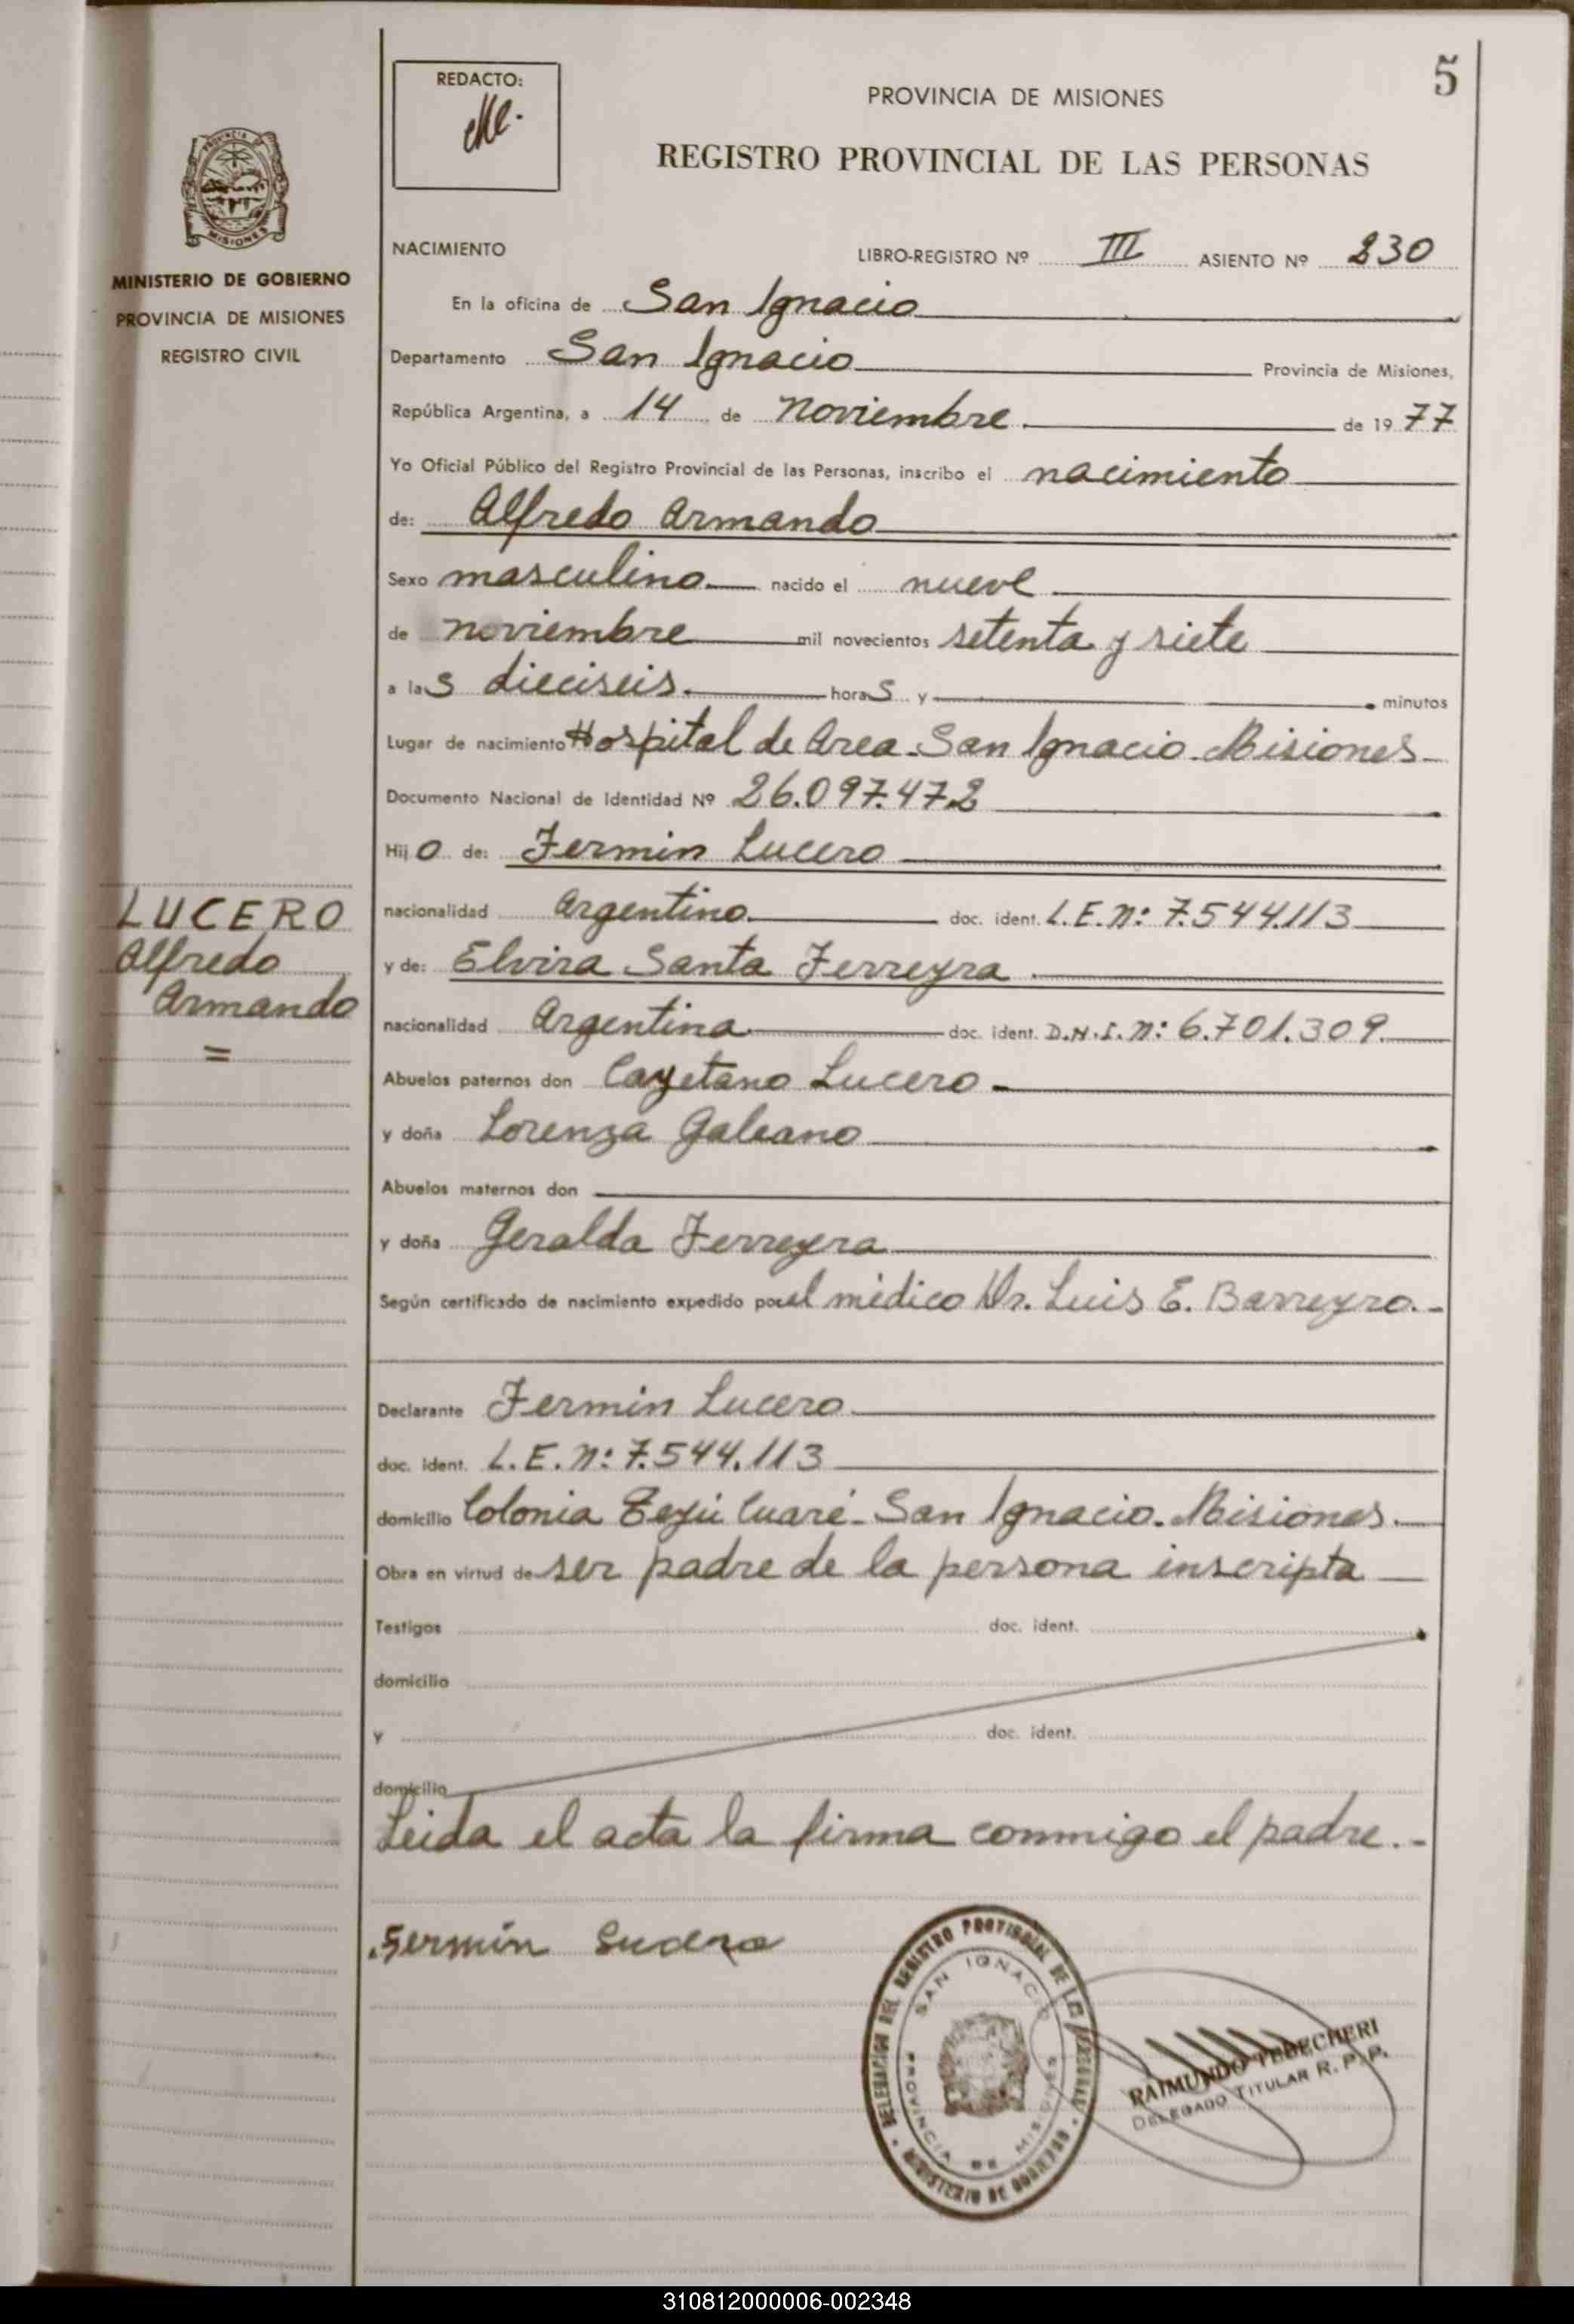 5
REDACTO:
PROVINCIA DE MISIONES
REGISTRO PROVINCIAL DE LAS PERSONAS
PROVINCIA DE
MISIONES
MINISTERIO DE GOBIERNO
PROVINCIA DE MISIONES
REGISTRO CIVIL
NACIMIENTO LIBRO-REGISTRO Nº III ASIENTO Nº 230
En la oficina de San Ignacio
Departamento San Ignacio Provincia de Misiones,
República Argentina, a 14 de Noviembre de 19 77
Yo Oficial Público del Registro Provincial de las Personas, inscribo el nacimiento
de: Alfredo Armando
Sexo masculino nacido el nueve
de noviembre mil novecientos setenta y siete
a las dieciseis horas y minutos
Lugar de nacimiento Hospital de Area San Ignacio Misiones
Documento Nacional de Identidad Nº 26.097.472
Hijo de: Fermin Lucero
LUCERO
Alfredo
Armando
=
nacionalidad Argentino doc. ident. L.E.Nº: 7.544.113
y de: Elvira Santa Ferreyra
nacionalidad Argentina doc. ident. D.N.I. Nº: 6.701.309
Abuelos paternos don Cayetano Lucero
y doña Lorenza Galeano
Abuelos maternos don
y doña Geralda Ferreyra
Según certificado de nacimiento expedido por el médico Dr. Luis E. Barreyro.-
Declarante Fermin Lucero
doc. ident. L.E. Nº: 7.544.113
domicilio Colonia Teyú Cuaré - San Ignacio. Misiones.
Obra en virtud de ser padre de la persona inscripta
Testigos doc. ident.
domicilio
y doc. ident.
domicilio
Leida el acta la firma conmigo el padre.-
Fermín Lucero
DELEGACION DEL REGISTRO PROVINCIAL DE LAS PERSONAS
MINISTERIO DE GOBIERNO
SAN IGNACIO
PROVINCIA DE MISIONES
RAIMUNDO TEDECHERI
DELEGADO TITULAR R. P. P.
310812000006-002348